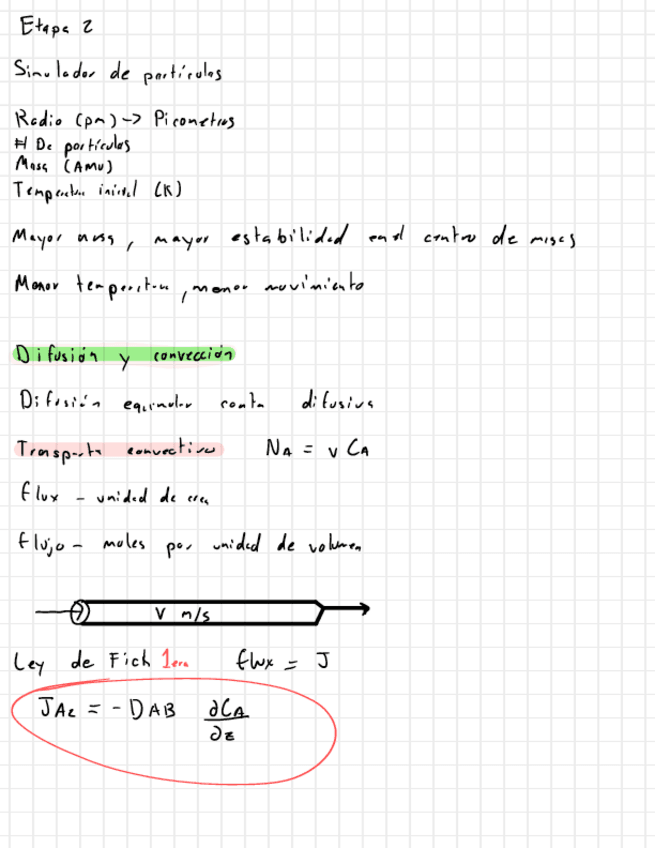 Etapa 2
Simulador de partículas
Radio (pm) -> Picometros
# De partículas
Masa (AMU)
Temperatura inicial (K)
Mayor masa, mayor estabilidad en el centro de masas
Menor temperatura, menor movimiento
Difusión y convección
Difusión equimolar contra difusiva
Transporte convectivo NA = v CA
flux - unidad de area
flujo - moles por unidad de volumen
V m/s
Ley de Fich 1era flux = J
JAz = - DAB ∂CA/∂z